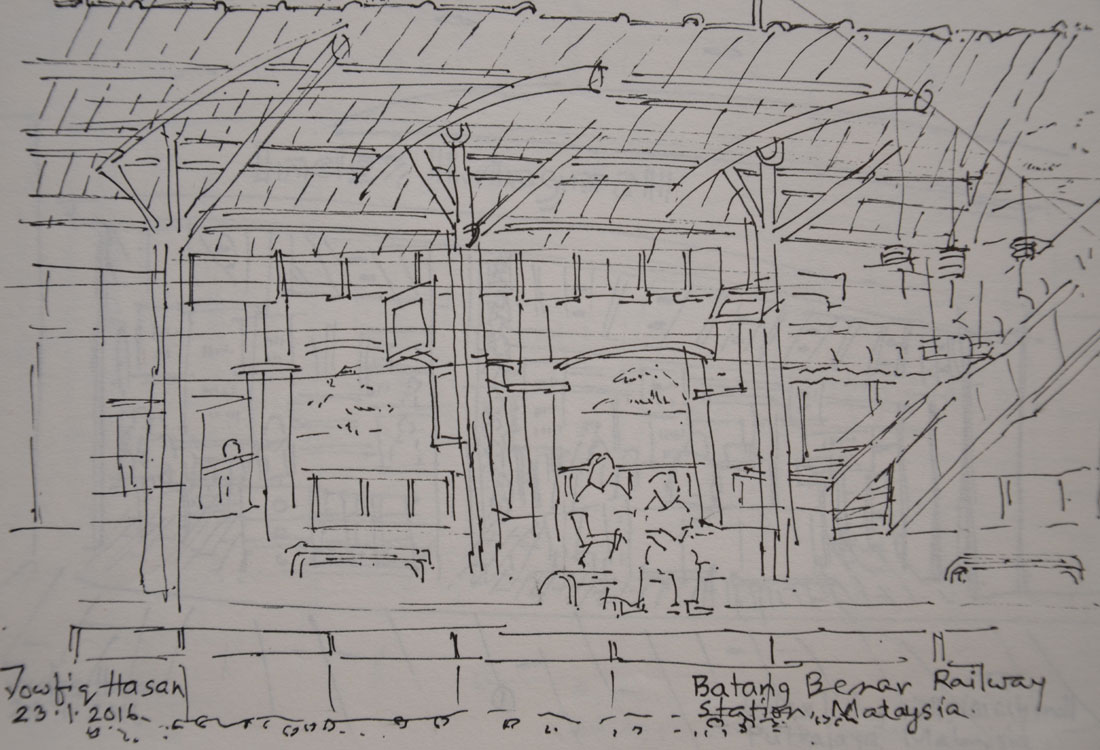 Towfiq Hasan
23.1.2016
Batang Benar Railway
Station, Malaysia